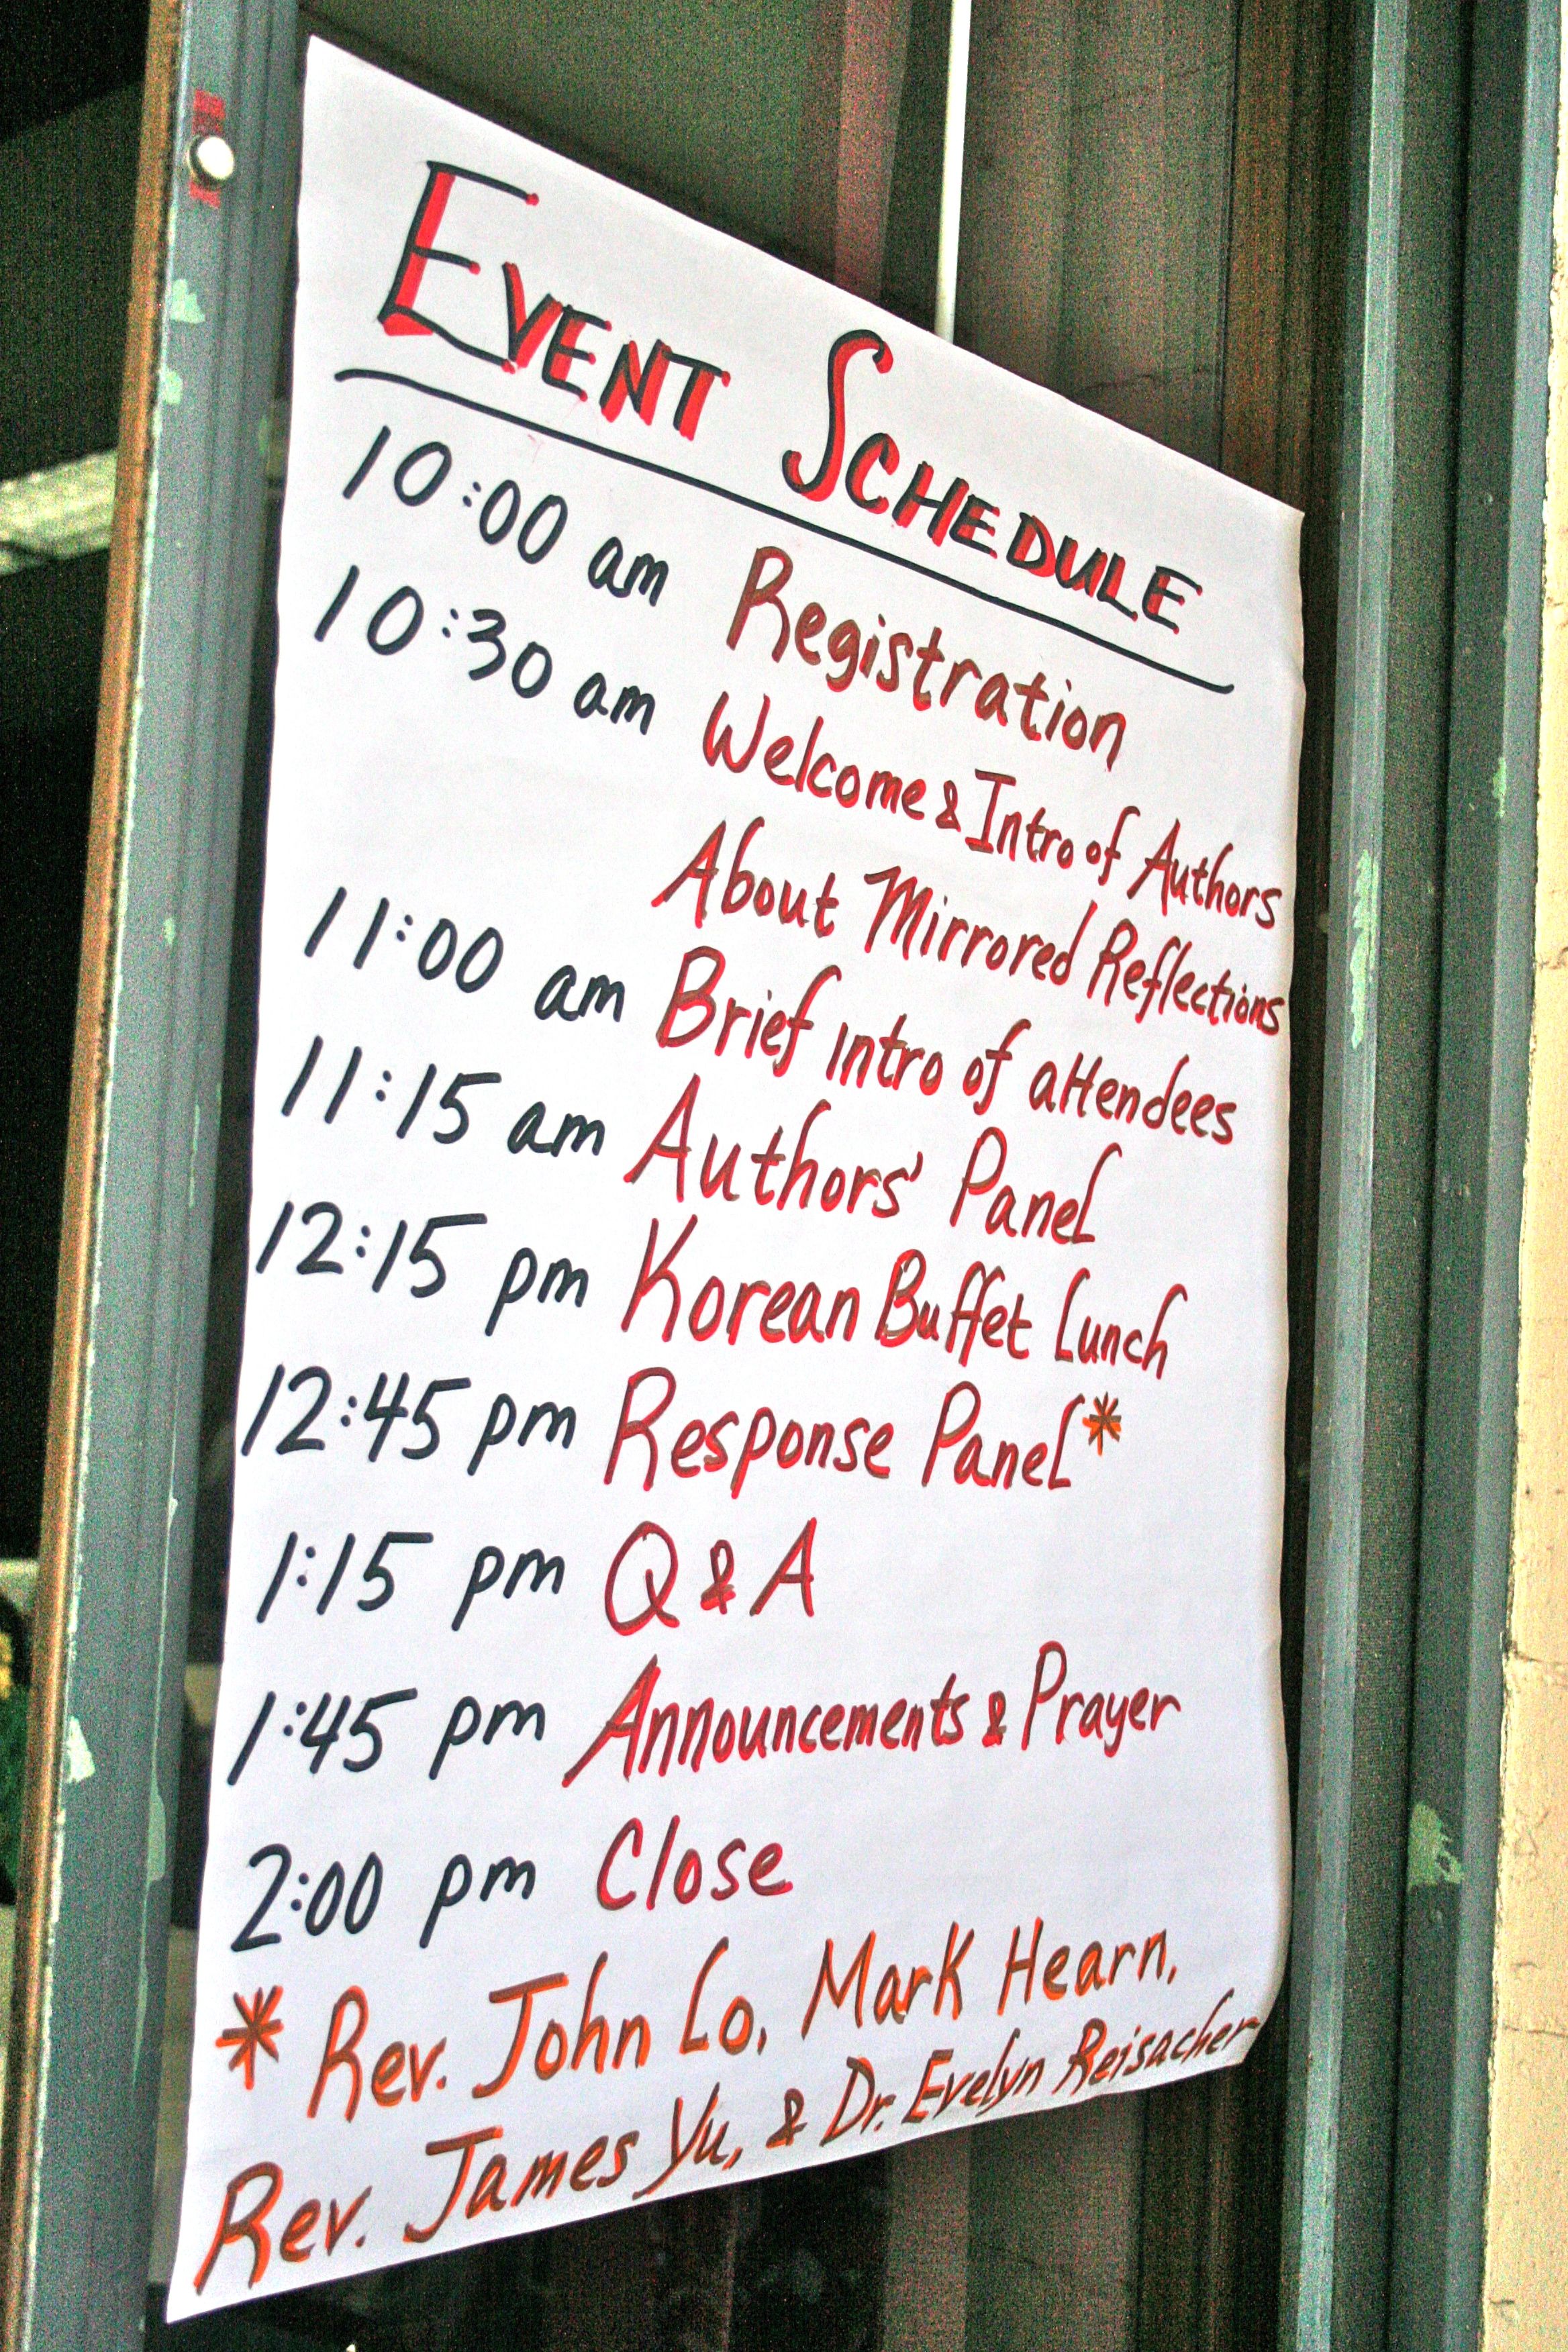 EVENT SCHEDULE
10:00 am Registration
10:30 am Welcome & Intro of Authors
About Mirrored Reflections
11:00 am Brief intro of attendees
11:15 am Authors' Panel
12:15 pm Korean Buffet Lunch
12:45 pm Response Panel*
1:15 pm Q & A
1:45 pm Announcements & Prayer
2:00 pm Close
* Rev. John Lo, Mark Hearn,
Rev. James Yu, & Dr. Evelyn Reisacher